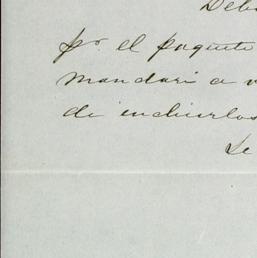 Debo
pr. el paquete
mandaré a
de incluirlos
Le